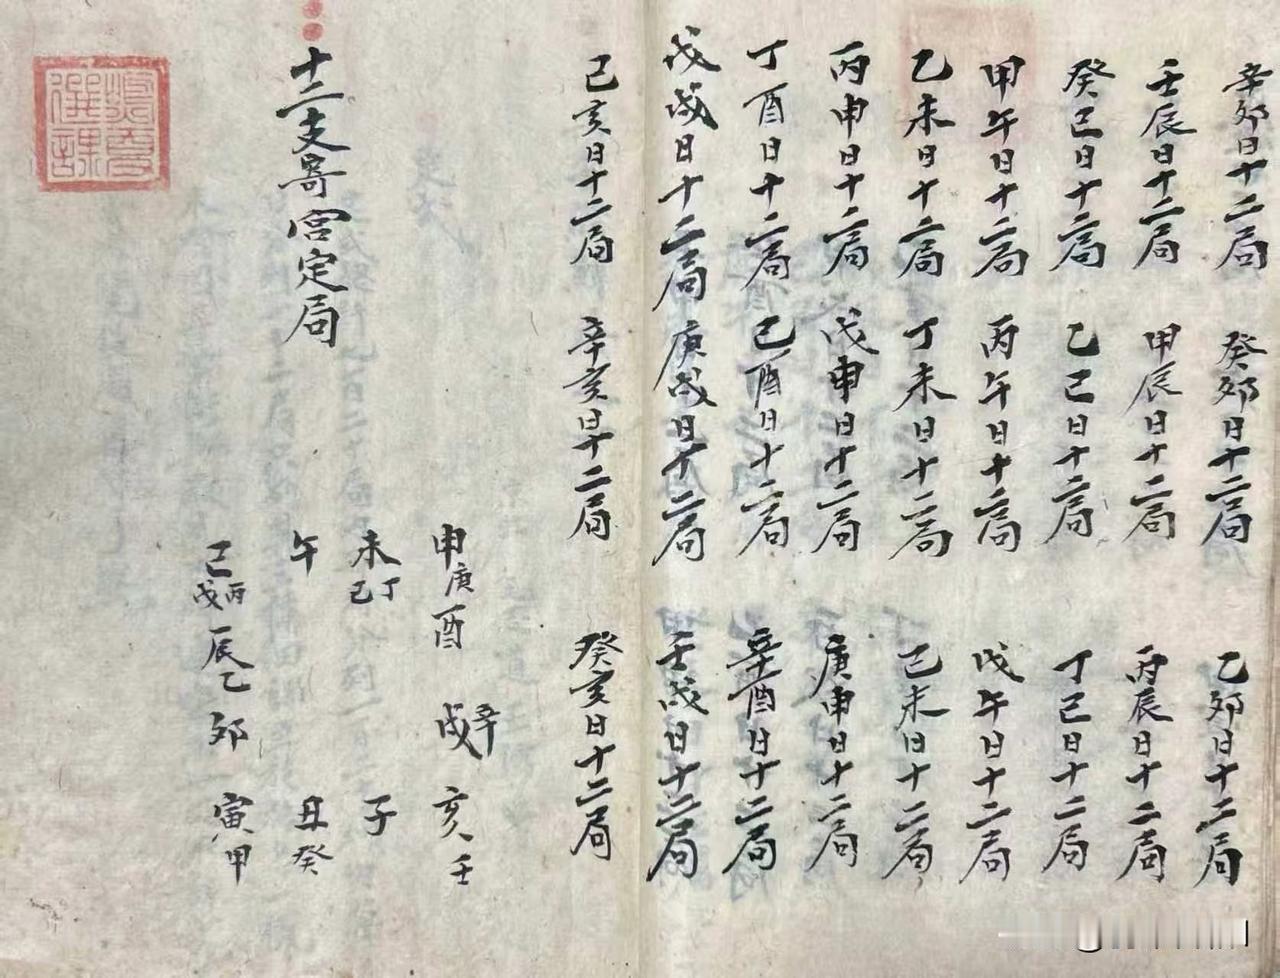 辛卯日十二局 癸卯日十二局 乙卯日十二局
壬辰日十二局 甲辰日十二局 丙辰日十二局
癸巳日十二局 乙巳日十二局 丁巳日十二局
甲午日十二局 丙午日十二局 戊午日十二局
乙未日十二局 丁未日十二局 己未日十二局
丙申日十二局 戊申日十二局 庚申日十二局
丁酉日十二局 己酉日十二局 辛酉日十二局
戊戌日十二局 庚戌日十二局 壬戌日十二局
己亥日十二局 辛亥日十二局 癸亥日十二局
十二支寄宮定局
申庚 酉 戌辛 亥壬
未丁己 子
午 丑癸
巳丙戊 辰乙 卯 寅甲